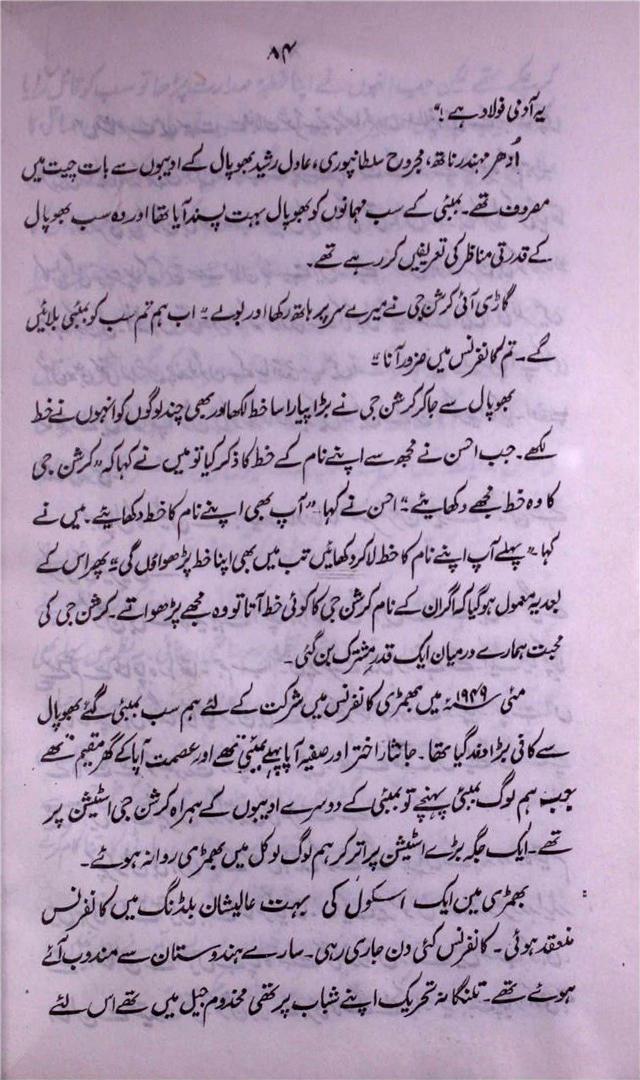 ۸۴
یہ آدمی فولاد ہے!"
اُدھر مہندر ناتھ، مجروح سلطانپوری، عادل رشید بھوپال کے ادیبوں سے بات چیت میں
مصروف تھے۔ بمبئی کے سب مہمانوں کو بھوپال بہت پسند آیا تھا اور وہ سب بھوپال
کے قدرتی مناظر کی تعریفیں کر رہے تھے۔
گاڑی آئی کرشن جی نے میرے سر پر ہاتھ رکھا اور بولے "اب ہم تم سب کو بمبئی بلائیں
گے۔ تم کانفرنس میں ضرور آنا"
بھوپال سے جا کر کرشن جی نے بڑا پیارا سا خط لکھا اور بھی چند لوگوں کو انہوں نے خط
لکھے۔ جب احسن نے مجھ سے اپنے نام کے خط کا ذکر کیا تو میں نے کہا کہ "کرشن جی
کا وہ خط مجھے دکھایئے" احسن نے کہا "آپ بھی اپنے نام کا خط دکھایئے۔ میں نے
کہا "پہلے آپ اپنے نام کا خط لا کر دکھائیں تب میں بھی اپنا خط پڑھواؤں گی" پھر اس کے
بعد یہ معمول ہو گیا کہ اگر ان کے نام کرشن جی کا کوئی خط آتا تو وہ مجھے پڑھواتے۔ کرشن جی کی
محبت ہمارے درمیان ایک قدرِ مشترک بن گئی۔
مئی ۱۹۴۹ء میں بھمڑی کانفرنس میں شرکت کے لئے ہم سب بمبئی گئے بھوپال
سے کافی بڑا وفد گیا تھا۔ جانثار اختر اور صفیہ آپا پہلے بمبئی تھے اور عصمت آپا کے گھر مقیم تھے
جب ہم لوگ بمبئی پہنچے تو بمبئی کے دوسرے ادیبوں کے ہمراہ کرشن جی اسٹیشن پر
تھے۔ ایک جگہ بڑے اسٹیشن پر اتر کر ہم لوگ لوکل میں بھمڑی روانہ ہوئے۔
بھمڑی میں ایک اسکول کی بہت عالیشان بلڈنگ میں کانفرنس
منعقد ہوئی۔ کانفرنس کئی دن جاری رہی۔ سارے ہندوستان سے مندوب آئے
ہوئے تھے۔ تلنگانہ تحریک اپنے شباب پر تھی مخدوم جیل میں تھے اس لئے